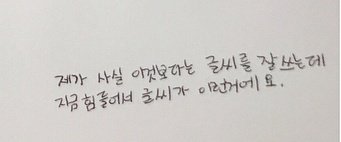 제가 사실 이것보다는 글씨를 잘 쓰는데
지금 힘들어서 글씨가 이런거에요.